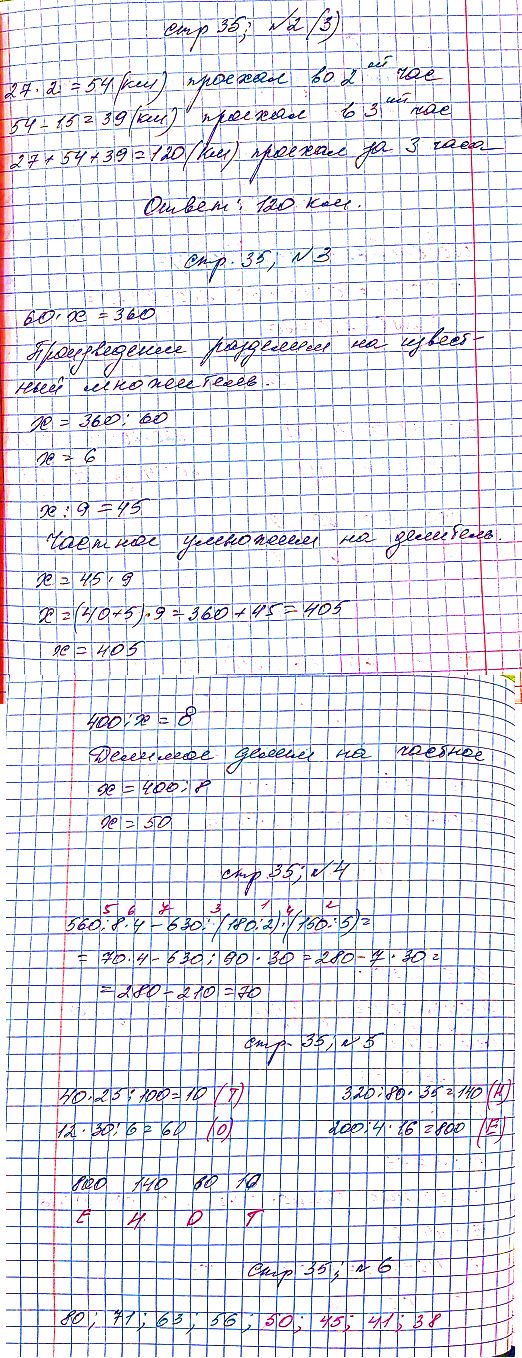 стр 35; №2(3)
27·2=54(км) проехал во 2ой час
54-15=39(км) проехал в 3ий час
27+54+39=120(км) проехал за 3 часа
Ответ: 120 км.
стр. 35; №3
60·x=360
Произведение разделим на извест-
ный множитель.
x=360:60
x=6
x:9=45
Частное умножаем на делитель.
x=45·9
x=(40+5)·9=360+45=405
x=405
400:x=8
Делимое делим на частное
x=400:8
x=50
стр 35; №4
5 6 7 3 1 4 2
560:8·4-630:(180:2)·(150:5)=
=70·4-630:90·30=280-7·30=
=280-210=70
стр. 35; №5
40·25:100=10 (Т) 320:80·35=140 (Н)
12·30:6=60 (О) 200:4·16=800 (Е)
800 140 60 10
Е Н О Т
стр 35; №6
80; 71; 63; 56; 50; 45; 41; 38